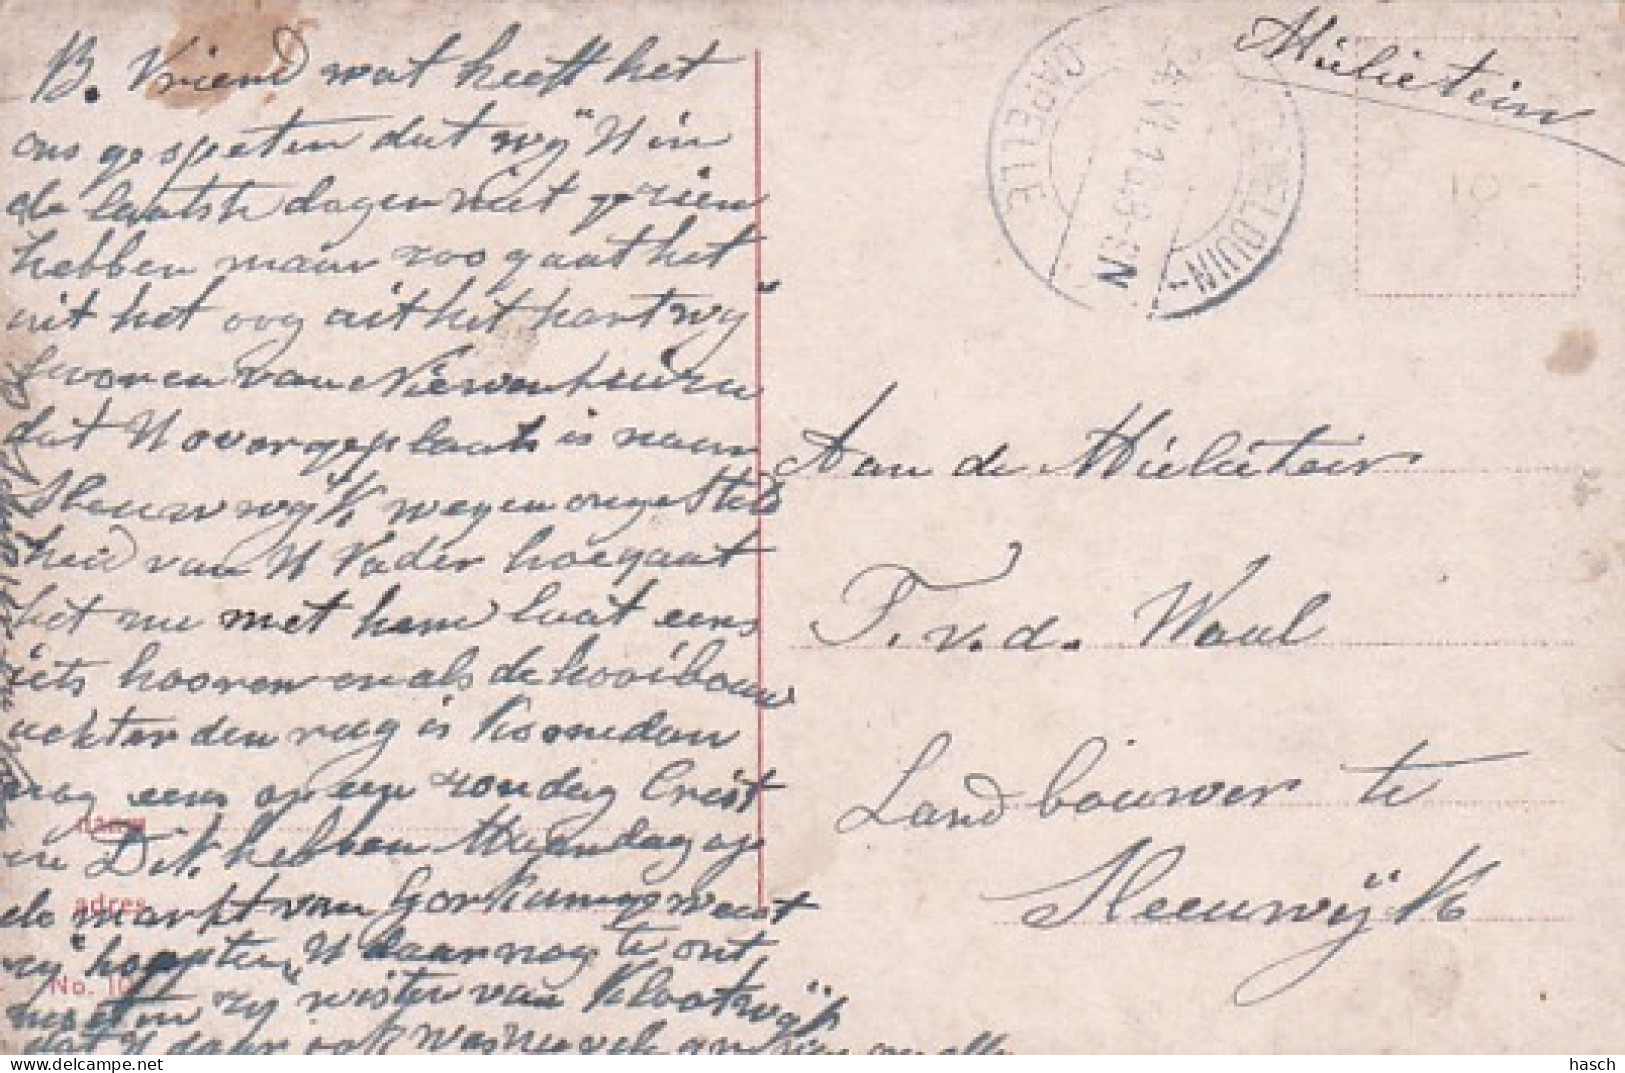 B. Vriend wat heeft het
ons gespeten dat wÿ U in
de laatste dagen niet gezien
hebben maar zoo gaat het
uit het oog uit het hart wÿ
hooren van
dat U overgeplaats is naar
Sleeuwwÿk wegen ongesteld
heid van U Vader hoe gaat
het nu met hem laat eens
iets hooren en als de hooibouw
achter den rug is kom dan
nog eens op een zondag Crist
en Dit. hebben Maandag op
de markt van Gorkum geweest
zÿ hoopten U daar nog te ont
moeten zÿ wisten van Klootwÿk
dat U daar ook was
naam
adres
No. 10
CAPELLE
DUIN-
8-9.N
Mielietein
10-
Aan de Mielieteir
T. v. d. Waal
Landbouwer te
Sleeuwÿk
hasch
delcampe.net